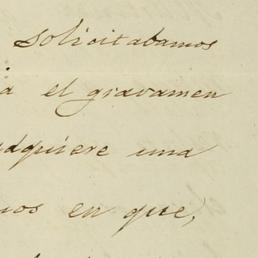 solicitabamos
a el gravamen
adquiere una
mos en que,